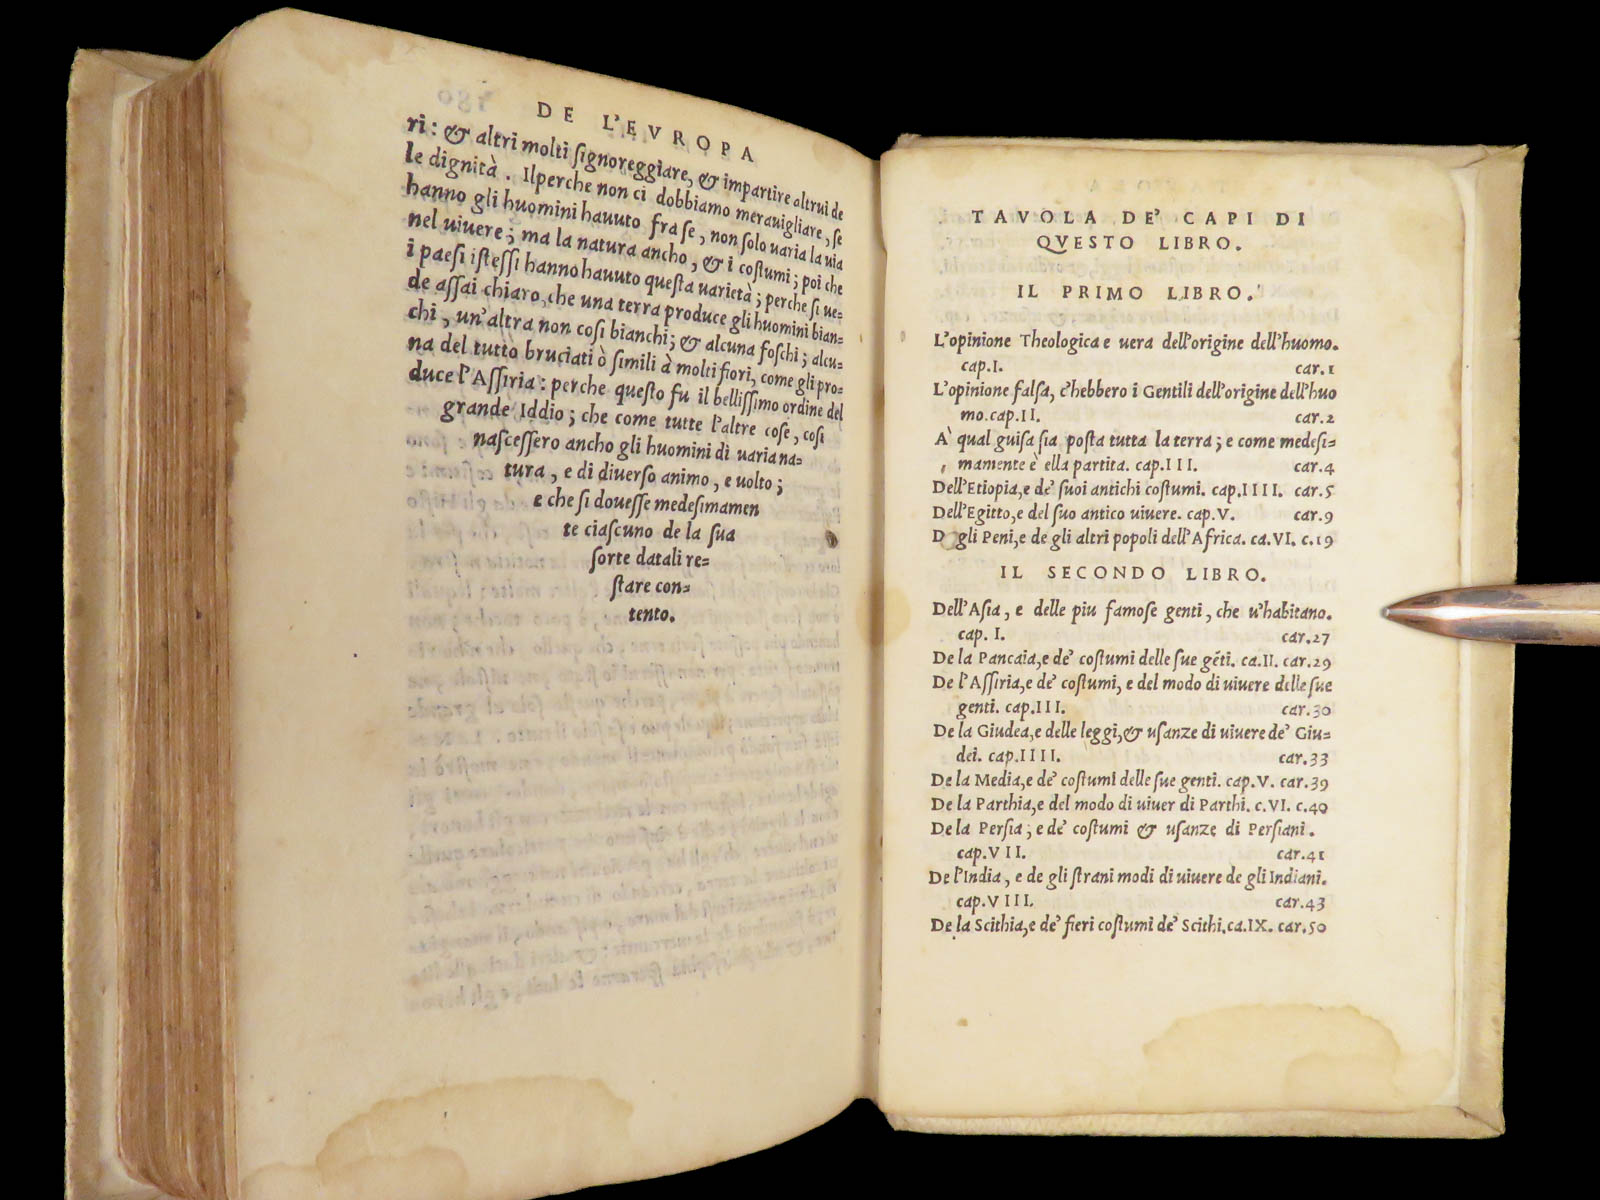 DE L'EVROPA
ri: & altri molti signoreggiare, & impartire altrui de
le dignità. Ilperche non ci dobbiamo merauigliare, se
hanno gli huomini hauuto fra se, non solo uaria la uia
nel uiuere; ma la natura ancho, & i costumi; poi che
i paesi istessi hanno hauuto questa uarietà; perche si ue=
de assai chiaro, che una terra produce gli huomini bian=
chi, un'altra non cosi bianchi; & alcuna foschi; alcu=
na del tutto bruciati ò simili à molti fiori, come gli pro=
duce l'Assiria: perche questo fu il bellissimo ordine del
grande Iddio; che come tutte l'altre cose, cosi
nascessero ancho gli huomini di uaria na=
tura, e di diuerso animo, e uolto;
e che si douesse medesimamen
te ciascuno de la sua
sorte datali re=
stare con=
tento.
TAVOLA DE' CAPI DI
QVESTO LIBRO.
IL PRIMO LIBRO.
L'opinione Theologica e uera dell'origine dell'huomo.
cap.I. car.1
L'opinione falsa, c'hebbero i Gentili dell'origine dell'huo
mo.cap.II. car.2
A' qual guisa sia posta tutta la terra; e come medesi=
mamente è ella partita. cap.III. car.4
Dell'Etiopia,e de' suoi antichi costumi. cap.IIII. car.5
Dell'Egitto,e del suo antico uiuere. cap.V. car.9
D gli Peni,e de gli altri popoli dell'Africa. ca.VI. c.19
IL SECONDO LIBRO.
Dell'Asia, e delle piu famose genti, che u'habitano.
cap. I. car.27
De la Pancaia,e de' costumi delle sue gēti. ca.II. car.29
De l'Assiria,e de' costumi, e del modo di uiuere delle sue
genti. cap.III. car.30
De la Giudea,e delle leggi,& usanze di uiuere de' Giu=
dei. cap.IIII. car.33
De la Media,e de' costumi delle sue genti. cap.V. car.39
De la Parthia,e del modo di uiuer di Parthi. c.VI. c.40
De la Persia; e de' costumi & usanze di Persiani.
cap.VII. car.41
De l'India, e de gli strani modi di uiuere de gli Indiani.
cap.VIII. car.43
De la Scithia,e de' fieri costumi de' Scithi.ca.IX. car.50